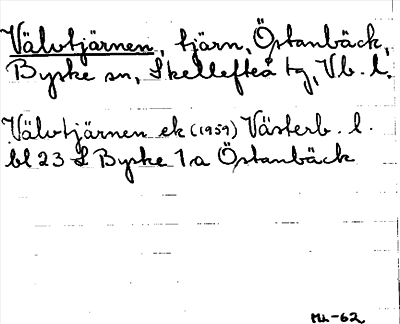 Välvtjärnen, tjärn, Östanbäck,
Byske sn, Skellefteå tg, Vb. l.
Välvtjärnen ek (1959) Västerb. l.
bl 23 S Byske 1a Östanbäck
ML-62